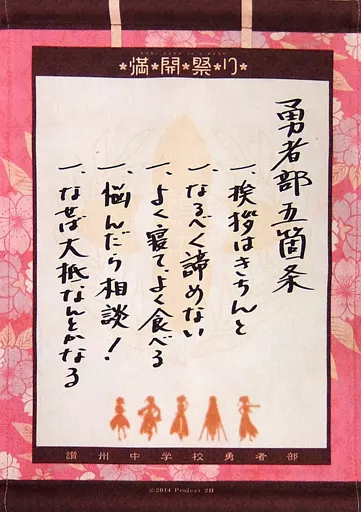 満開祭り
勇者部五箇条
一、挨拶はきちんと
一、なるべく諦めない
一、よく寝て、よく食べる
一、悩んだら相談！
一、なせば大抵なんとかなる
讃州中学校勇者部
©2014 Project 2H